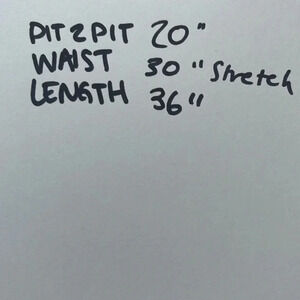 PIT 2 PIT 20"
WAIST 30" Stretch
LENGTH 36"